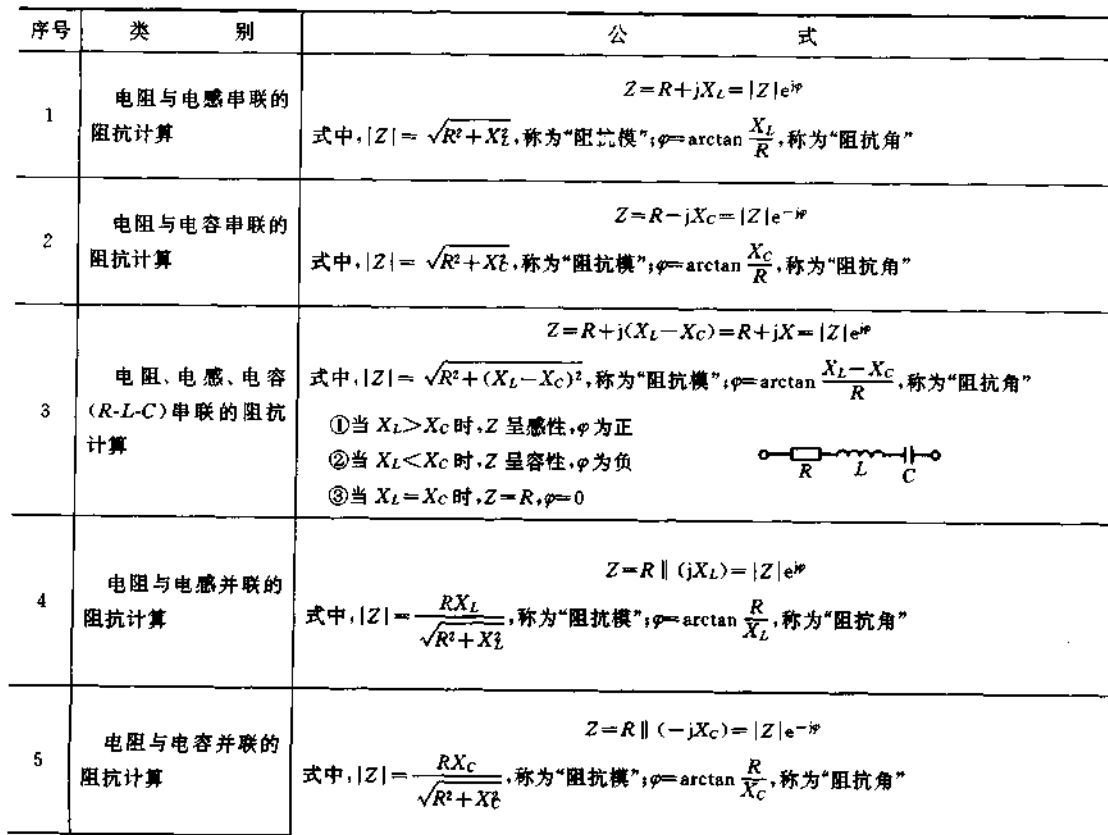 序号 类 别 公 式
1 电阻与电感串联的阻抗计算
Z=R+jX_L=|Z|e^{jφ}
式中,|Z|=√(R²+X_L²),称为“阻抗模”;φ=arctan X_L/R,称为“阻抗角”
2 电阻与电容串联的阻抗计算
Z=R-jX_C=|Z|e^{-jφ}
式中,|Z|=√(R²+X_C²),称为“阻抗模”;φ=arctan X_C/R,称为“阻抗角”
3 电阻、电感、电容(R-L-C)串联的阻抗计算
Z=R+j(X_L-X_C)=R+jX=|Z|e^{jφ}
式中,|Z|=√(R²+(X_L-X_C)²),称为“阻抗模”;φ=arctan (X_L-X_C)/R,称为“阻抗角”
①当 X_L>X_C 时,Z 呈感性,φ为正
②当 X_L<X_C 时,Z 呈容性,φ为负
③当 X_L=X_C 时,Z=R,φ=0
R L C
4 电阻与电感并联的阻抗计算
Z=R∥(jX_L)=|Z|e^{jφ}
式中,|Z|=RX_L/√(R²+X_L²),称为“阻抗模”;φ=arctan R/X_L,称为“阻抗角”
5 电阻与电容并联的阻抗计算
Z=R∥(-jX_C)=|Z|e^{-jφ}
式中,|Z|=RX_C/√(R²+X_C²),称为“阻抗模”;φ=arctan R/X_C,称为“阻抗角”